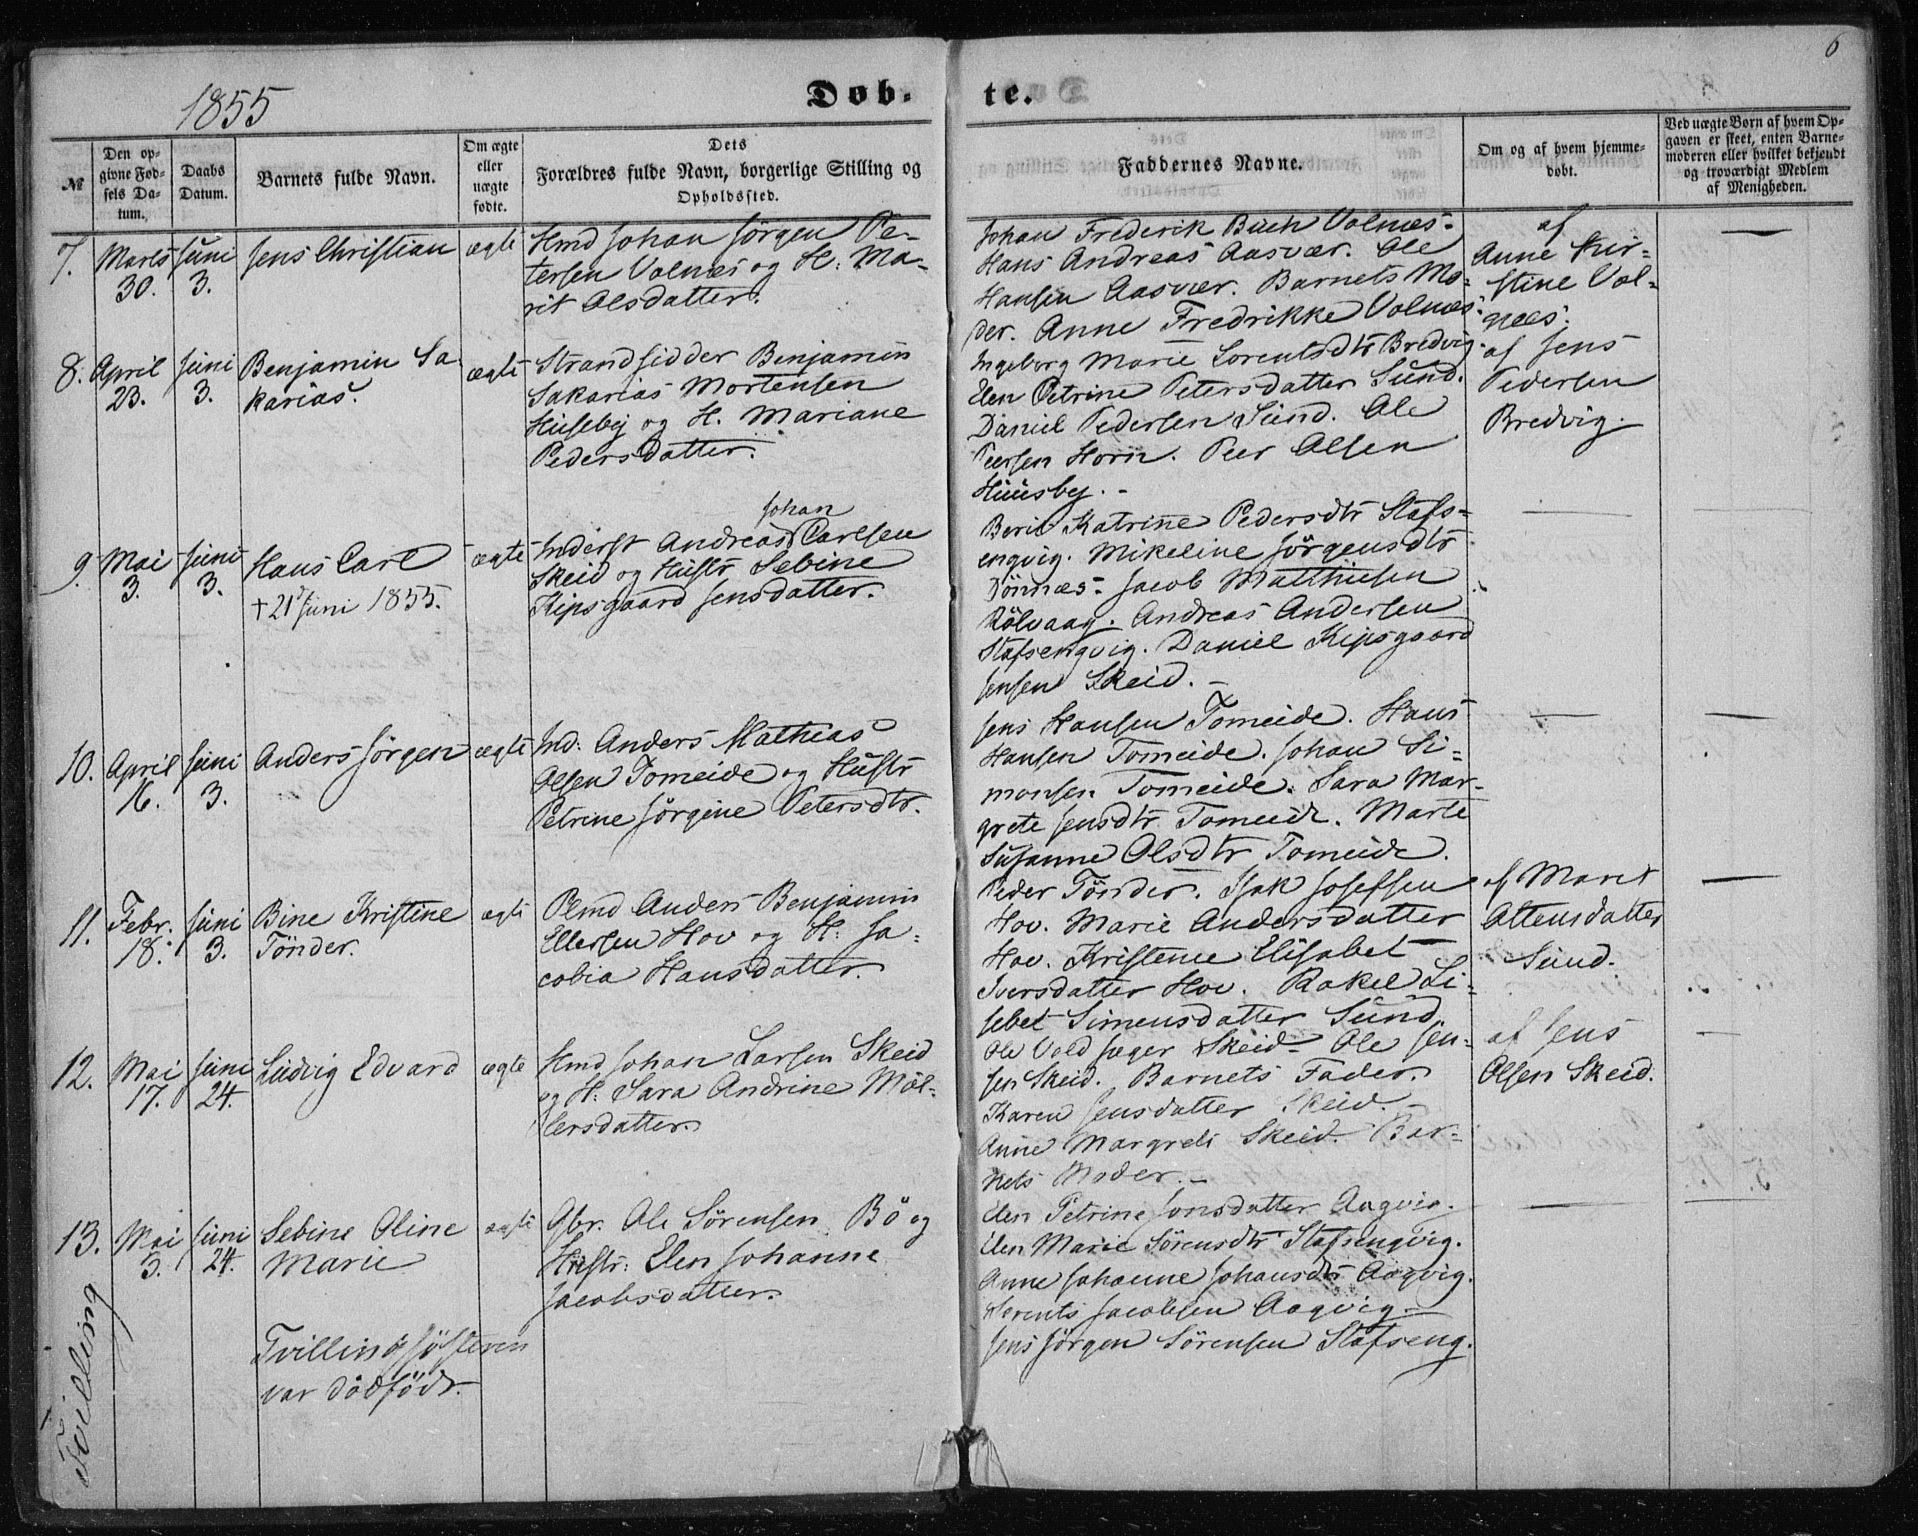 6
1855
Døb- te.
№
Den op-
givne Fød-
sels Da-
tum.
Daabs
Datum.
Barnets fulde Navn.
Om ægte
eller
uægte
fødte.
Dets
Forældres fulde Navn, borgerlige Stilling og
Opholdssted.
Faddernes Navne.
Om og af hvem hjemme-
døbt.
Ved uægte Børn af hvem Op-
gaven er skeet, enten Barne-
moderen eller hvilket bekjendt
og troværdigt Medlem
af Menigheden.
7.
Marts
30.
Juni
3.
Jens Christian
ægte
Hmd Johan Jørgen Pe-
tersen Valnæs og H: Ma-
rit Olsdatter.
Johan Frederik Buch Valnæs.
Hans Andreas Aasvær. Ole
Hansen Aasvær. Barnets Mo-
der. Anne Fredrikke Valnæs.
af
Anne Kir-
stine Val-
næs.
8.
April
23.
Juni
3.
Benjamin Sa-
karias.
ægte
Strandsidder Benjamin
Sakarias Mortensen
Huseby og H. Mariane
Pedersdatter.
Ingeborg Marie Lorentsdtr Bredvig.
Elen Petrine Petersdatter Sund.
Daniel Pedersen Sund. Ole
Peersen Horn. Peer Olsen
Huusby. -
af Jens
Pedersen
Bredvig.
9.
Mai
3.
Juni
3.
Hans Carl
† 21 Juni 1855.
ægte
Johan
Inderst Andreas Carlsen
Skeid og Hustr Sebine
Kipsgaard Jensdatter.
Berit Katrine Pedersdtr Stafs-
engvig. Mikeline Jörgensdtr
Dönnæs. Jacob Matthiesen
Rölvaag. Andreas Andersen
Stafsengvig. Daniel Kipsgaard
Jensen Skeid. -
10.
April
16.
Juni
3.
Anders Jörgen
ægte
Ind: Anders Mathias
Olsen Tomeide og Hustr
Petrine Jörgine Petersdtr.
Jens Hansen Tomeide. Hans
Hansen Tomeide. Johan Si-
monsen Tomeide. Sara Mar-
grete Jensdtr Tomeide. Marte
Susanne Olsdtr Tomeide.
11.
Febr.
18.
Juni
3.
Bine Kristine
Tönder.
ægte
Plmd Anders Benjamin
Ellersen Hov og H: Ja-
cobia Hansdatter.
Peder Tönder. Isak Josefsen
Hov. Marie Andersdatter
Hov. Kristene Elisabet
Iversdatter Hov. Rakel Li-
sebet Simensdatter Sund.
af Maret
Attensdatter
Sund.
12.
Mai
17.
Juni
24.
Ludvig Edvard
ægte
Hmd Johan Larsen Skeid
og H: Sara Andrine Möl-
lersdatter.
Ole Vold Jæger Skeid. Ole Jen-
sen Skeid. Barnets Fader.
Karen Jensdatter Skeid. -
Anne Margrete Skeid. Bar-
nets Moder. -
af Jens
Olsen Skeid.
13.
Mai
3.
Juni
24.
Sebine Oline
Marie
ægte
Gbr. Ole Sörensen Bö og
Hustr: Elen Johanne
Jacobsdatter.
Elen Petrine Jonsdatter Aagvig.
Elen Marie Sörensdtr Stafsengvig.
Anne Johanne Johansdtr Aagvig.
Lorents Jacobsen Aagvig.
Jens Jörgen Sörensen Stafseng.
Tvilling
Tvillingsösteren
var dödfödt.